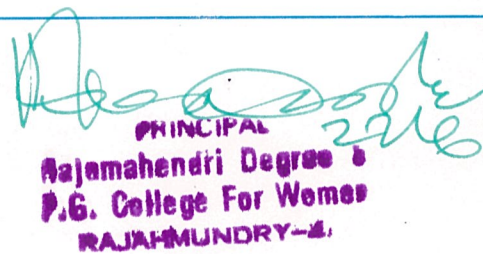 PRINCIPAL
Rajamahendri Degree &
P.G. College For Women
RAJAHMUNDRY-4.